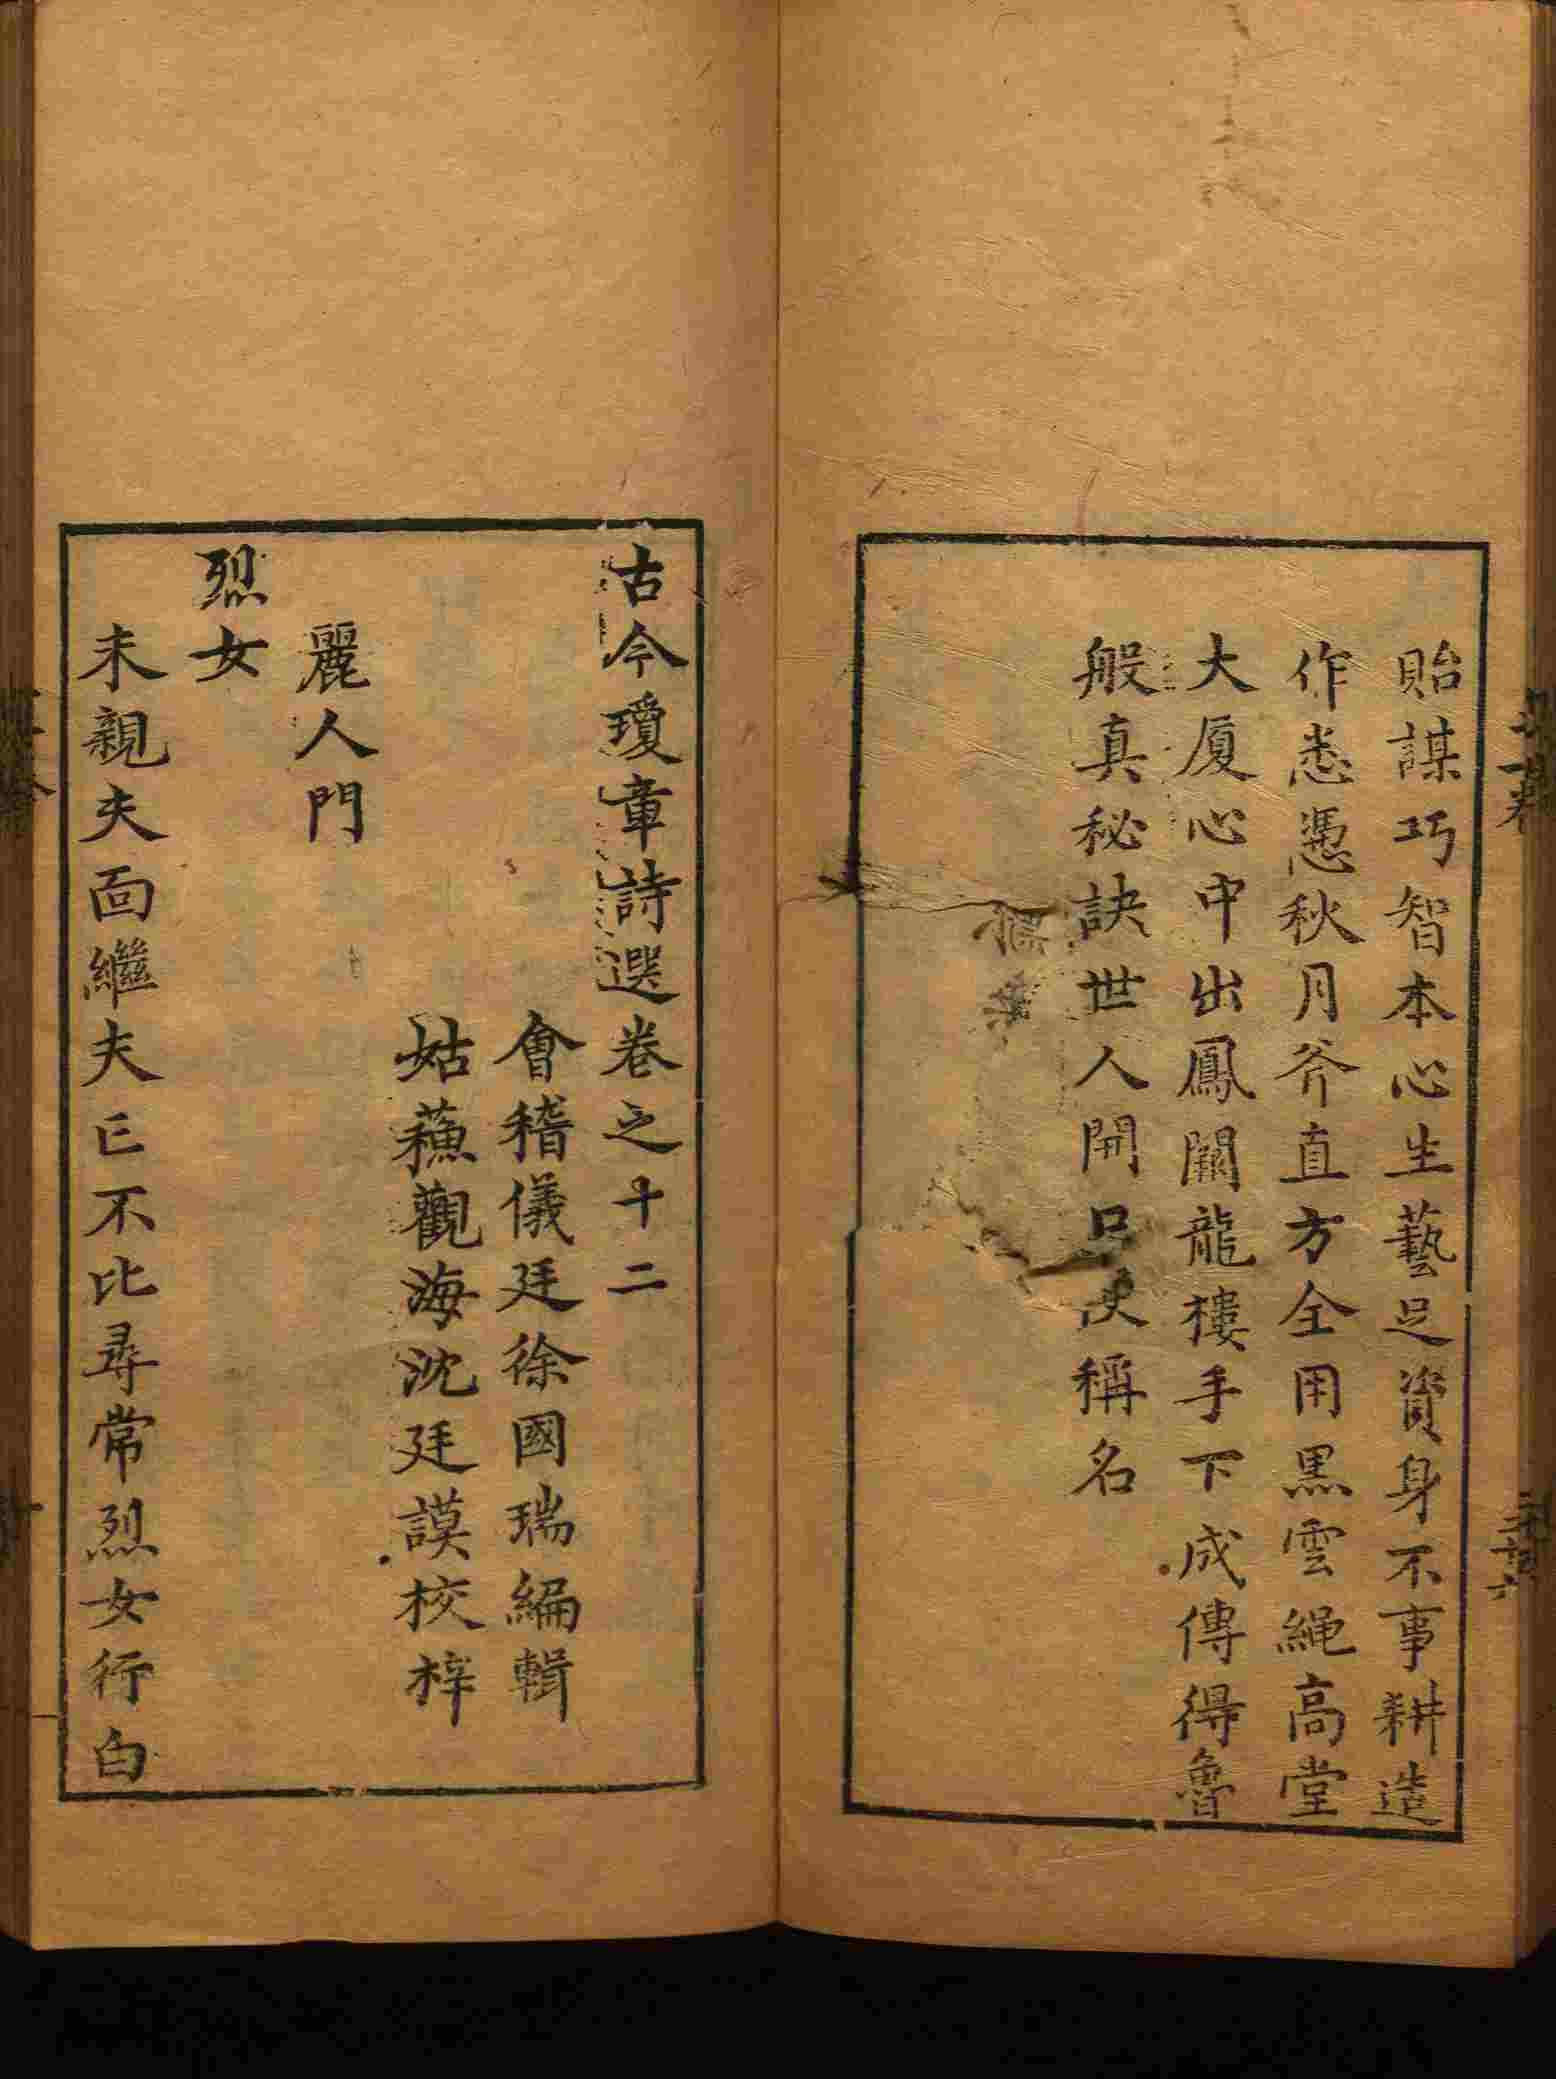 貽謀巧智本心生藝足資身不事耕造
作悉憑秋月斧直方全用黑雲繩高堂
大厦心中出鳳闕龍樓手下成傳得魯
般真秘訣世人開口便稱名
古今瓊章詩選卷之十二
會稽儀廷徐國瑞編輯
姑蘓觀海沈廷謨校梓
麗人門
烈女
未親夫面繼夫亡不比尋常烈女行白